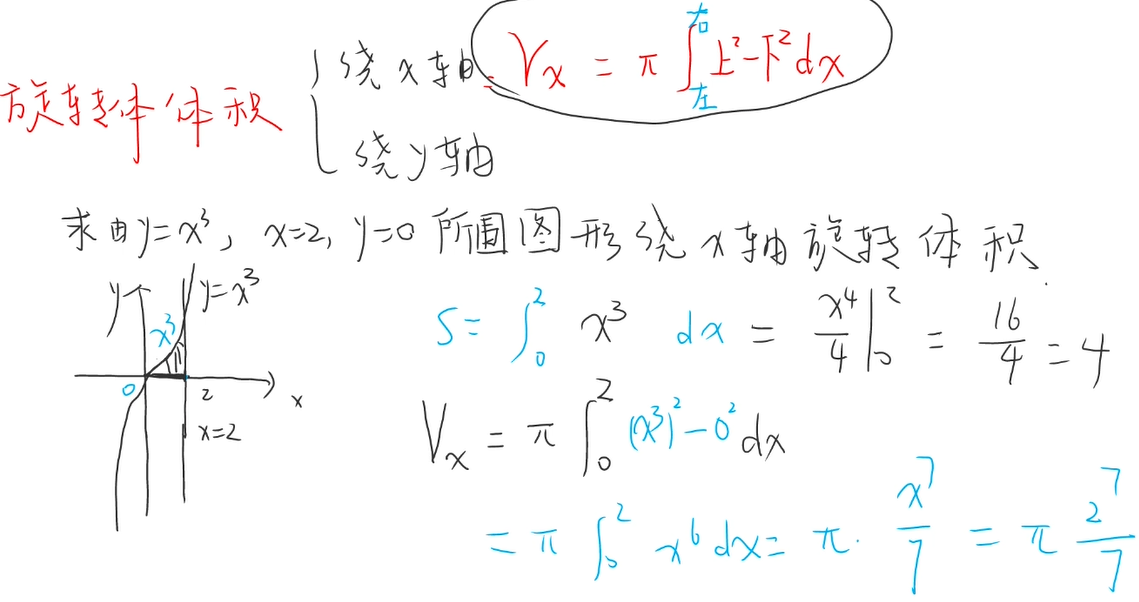 旋转体体积 { 绕x轴: Vx = π∫左右 上²-下² dx
绕y轴
求由y=x³, x=2, y=0所围图形绕x轴旋转体积.
y y=x³
x³
0 2 x
x=2
S = ∫₀² x³ dx = x⁴/4 |₀² = 16/4 = 4
Vx = π∫₀² (x³)²-0² dx
= π∫₀² x⁶ dx = π· x⁷/7 = π 2⁷/7